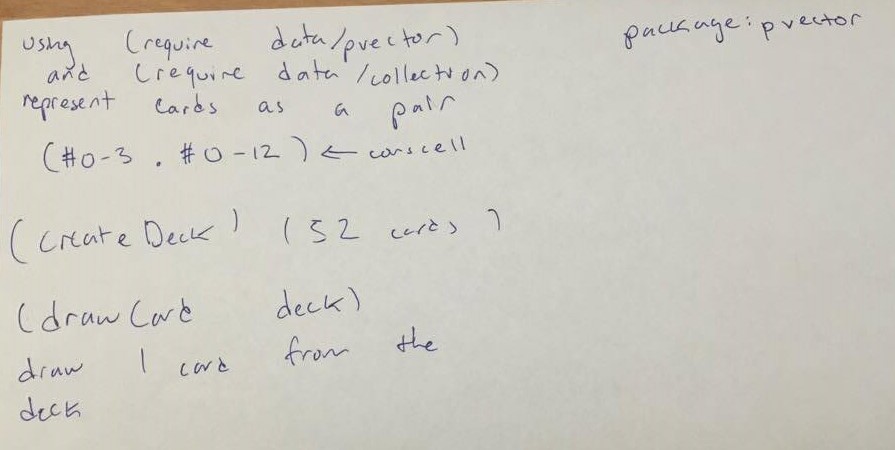 using (require data/pvector)
package: pvector
and (require data/collection)
represent cards as a pair
(#0-3 . #0-12) ← conscell
(create Deck) (52 cards)
(draw Card deck)
draw 1 card from the
deck